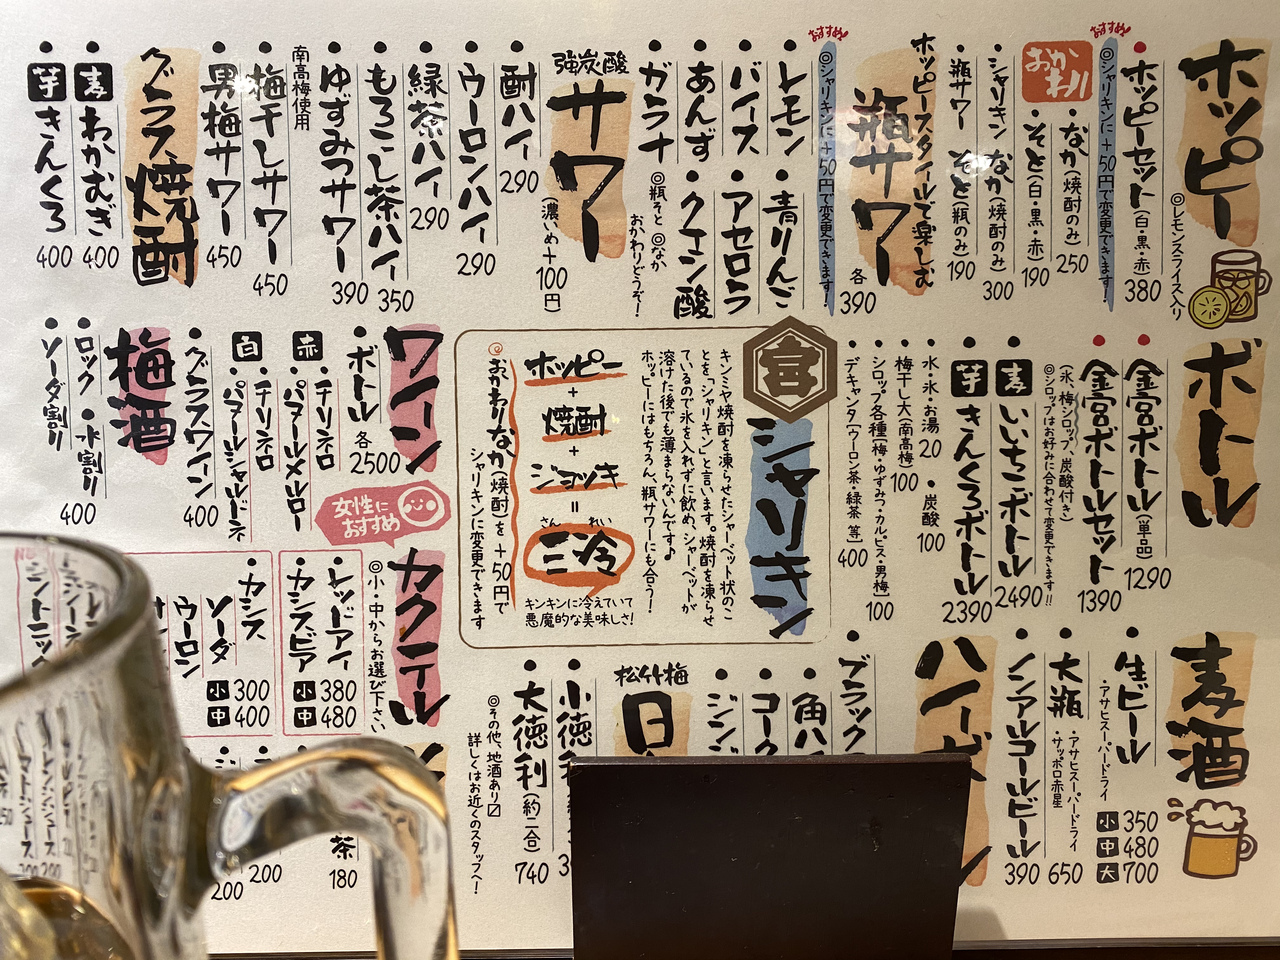 ホッピー
◎レモンスライス入り
ホッピーセット(白・黒・赤) 380
おすすめ!
◎シャリキンに+50円で変更できます!
おかわり
なか(焼酎のみ) 250
そと(白・黒・赤) 190
シャリキン なか(焼酎のみ) 300
瓶サワー そと(瓶のみ) 190
ホッピースタイルで楽しむ
瓶サワー
各390
おすすめ!
◎シャリキンに+50円で変更できます!
レモン
青りんご
バイス
アセロラ
あんず
クエン酸
ガラナ
◎瓶そと ◎なか
おかわりどうぞ!
強炭酸
サワー
(濃いめ+100円)
酎ハイ 290
ウーロンハイ 290
緑茶ハイ 290
もろこし茶ハイ 350
ゆずみつサワー 390
南高梅使用
梅干しサワー 450
男梅サワー 450
グラス焼酎
麦 わかむぎ 400
芋 きんくろ 400
ボトル
金宮ボトル(単品) 1290
金宮ボトルセット 1390
(氷、梅シロップ、炭酸付き)
◎シロップはお好みに合わせて変更できます!!
麦 いいちこボトル 2490
芋 きんくろボトル 2390
水・氷・お湯 20
炭酸 100
梅干し大(南高梅) 100
シロップ各種(梅・ゆずみつ・カルピス・男梅) 100
デキャンタ(ウーロン茶・緑茶 等) 400
宮
シャリキン
キンミヤ焼酎を凍らせたシャーベット状のこ
とを「シャリキン」と言います。焼酎を凍らせ
ているので氷を入れずに飲め、シャーベットが
溶けた後でも薄まらないんです♪
ホッピーにはもちろん、瓶サワーにも合う!
ホッピー
+
焼酎
+
ジョッキ
=
さん れい
三冷
キンキンに冷えていて
悪魔的な美味しさ!
◎おかわりなか(焼酎)を+50円で
シャリキンに変更できます
ワイン
ボトル 各2500
赤
チリネロ
パヌールメルロー
白
チリネロ
パヌールシャルドネ
グラスワイン 400
女性におすすめ
梅酒
ロック・水割り 400
ソーダ割り
麦酒
生ビール
・アサヒスーパードライ
小 350
中 480
大 700
大瓶 650
・アサヒスーパードライ
・サッポロ赤星
ノンアルコールビール 390
ハイボ
ブラック
角ハ
コーク
ジンジ
松竹梅
日
小徳利
大徳利(約二合) 740
◎その他、地酒あり〼
詳しくはお近くのスタッフへ!
カクテル
◎小・中からお選び下さい
レッドアイ
カシスビア
小 380
中 480
カシス
ソーダ
ウーロン
小 300
中 400
茶 180
200
200